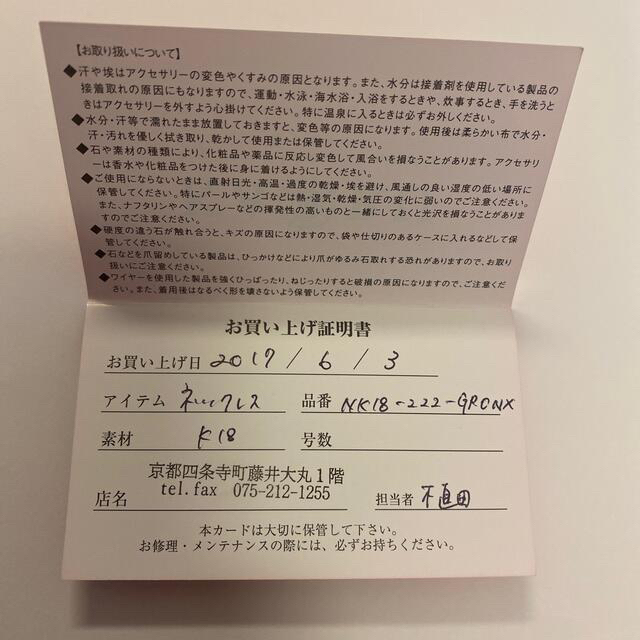 【お取り扱いについて】
◆汗や埃はアクセサリーの変色やくすみの原因となります。また、水分は接着剤を使用している製品の
接着取れの原因にもなりますので、運動・水泳・海水浴・入浴をするときや、炊事するとき、手を洗うと
きはアクセサリーを外すよう心掛けてください。特に温泉に入るときは必ずお外しください。
◆水分・汗等で濡れたまま放置しておきますと、変色等の原因になります。使用後は柔らかい布で水分・
汗・汚れを優しく拭き取り、乾かして使用または保管してください。
◆石や素材の種類により、化粧品や薬品に反応し変色して風合いを損なうことがあります。アクセサリ
ーは香水や化粧品をつけた後に身に着けるようにしてください。
◆ご使用にならないときは、直射日光・高温・過度の乾燥・埃を避け、風通しの良い湿度の低い場所に
保管してください。特にパールやサンゴなどは熱・湿気・乾燥・気圧の変化に弱いのでご注意ください。
また、ナフタリンやヘアスプレーなどの揮発性の高いものと一緒にしておくと光沢を損なうことがありま
すのでご注意ください。
◆硬度の違う石が触れ合うと、キズの原因になりますので、袋や仕切りのあるケースに入れるなどして保
管してください。
◆石などを爪留めしている製品は、ひっかけなどにより爪がゆるみ石取れする恐れがありますので、お取り
扱いにご注意ください。
◆ワイヤーを使用した製品を強くひっぱったり、ねじったりすると破損の原因になりますので、ご注意くだ
さい。また、着用後はなるべく形を壊さないよう保管してください。
お買い上げ証明書
お買い上げ日 2017 / 6 / 3
アイテム ネックレス 品番 NK18-222-GRONX
素材 K18 号数
京都四条寺町藤井大丸1階
tel.fax 075-212-1255
店名 担当者
本カードは大切に保管して下さい。
お修理・メンテナンスの際には、必ずお持ちください。